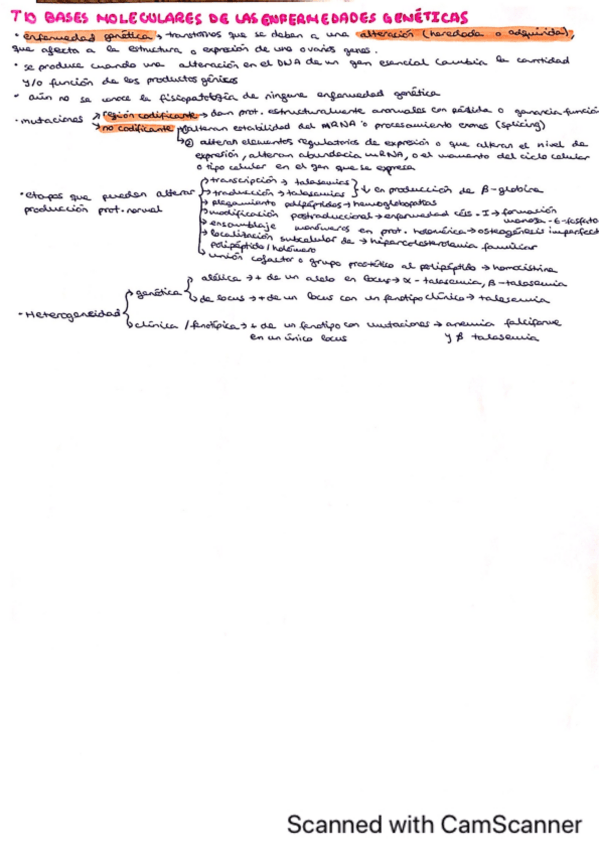 T10 BASES MOLECULARES DE LAS ENFERMEDADES GENÉTICAS
• enfermedad genética → transtornos que se deben a una alteración (heredada o adquirida),
que afecta a la estructura o expresión de uno o varios genes.
• se produce cuando una alteración en el DNA de un gen esencial cambia la cantidad
y/o función de los productos génicos
• aún no se conoce la fisiopatología de ninguna enfermedad genética
• mutaciones → región codificante → dan prot. estructuralmente anormales con pérdida o ganancia función
→ no codificante → ① alteran estabilidad del mRNA o procesamiento (splicing)
→ ② alteran elementos reguladores de expresión o que alteran el nivel de
expresión, alteran abundancia mRNA, o el momento del ciclo celular
o tipo celular en el gen que se expresa
• etapas que pueden alterar
producción prot. normal
→ transcripción → talasemias
→ traducción → talasemias } ↓ en producción de β-globina
→ plegamiento polipéptidos → hemoglobopatías
→ modificación postraduccional → enfermedad céls. I → formación
manosa-6-fosfato
→ ensamblaje monómeros en prot. holomérica → osteogénesis imperfect
→ localización subcelular de → hipercolesterolemia familiar
polipéptido/holómero
→ unión cofactor o grupo prostético al polipéptido → homocistina
• Heterogeneidad
→ genética
→ alélica → + de un alelo en locus → α-talasemia, β-talasemia
→ de locus → + de un locus con un fenotipo clínico → talasemia
→ clínica / fenotípica → + de un fenotipo con mutaciones → anemia falciforme
en un único locus y β talasemia
Scanned with CamScanner